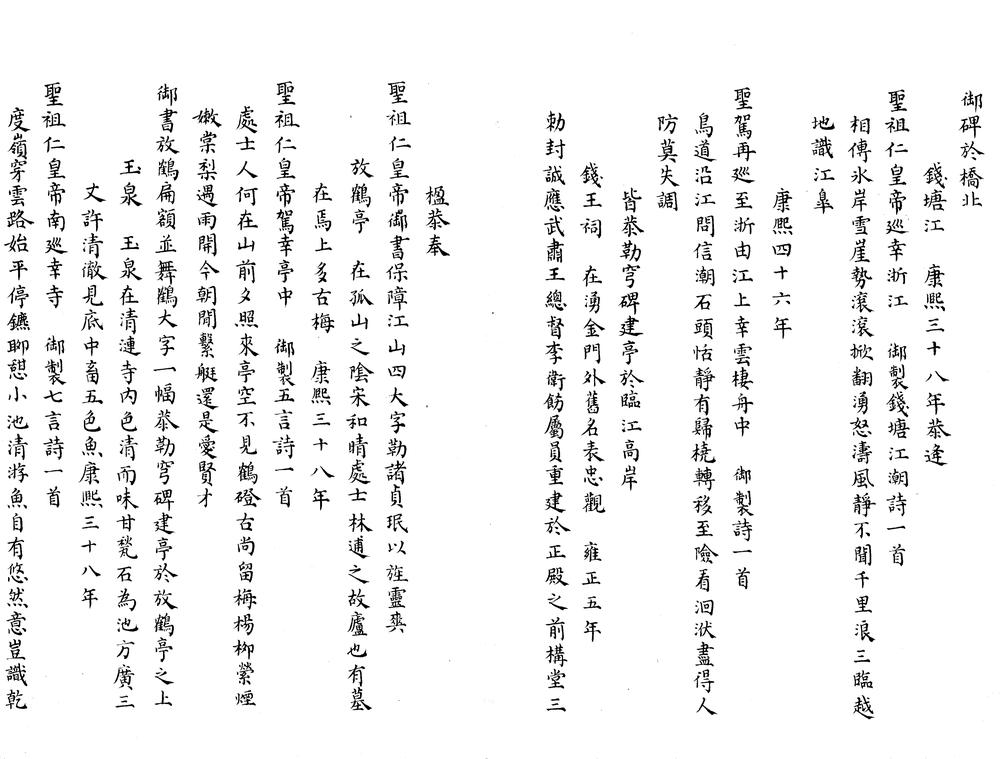 御碑於橋北
錢塘江　康熙三十八年恭逢
聖祖仁皇帝巡幸浙江　御製錢塘江潮詩一首
相傳氷岸雪崖勢滾滾掀翻湧怒濤風靜不聞千里浪三臨越
地識江臯
康熙四十六年
聖駕再巡至浙由江上幸雲棲舟中　御製詩一首
鳥道沿江問信潮石頭恬靜有歸橈轉移至險看洄洑盡得人
防莫失調
皆恭勒穹碑建亭於臨江高岸
錢王祠　在湧金門外舊名表忠觀　雍正五年
勅封誠應武肅王總督李衛飭屬員重建於正殿之前構堂三
楹恭奉
聖祖仁皇帝御書保障江山四大字勒諸貞珉以旌靈爽
放鶴亭　在孤山之陰宋和晴處士林逋之故廬也有墓
在焉上多古梅　康熙三十八年
聖祖仁皇帝駕幸亭中　御製五言詩一首
處士人何在山前夕照來亭空不見鶴磴古尚留梅楊柳縈煙
嫩棠梨過雨開今朝閒繫艇還是愛賢才
御書放鶴扁額並舞鶴大字一幅恭勒穹碑建亭於放鶴亭之上
玉泉　玉泉在清漣寺內色清而味甘甃石為池方廣三
丈許清徹見底中畜五色魚康熙三十八年
聖祖仁皇帝南巡幸寺　御製七言詩一首
度嶺穿雲路始平停鑣聊憩小池清游魚自有悠然意豈識乾